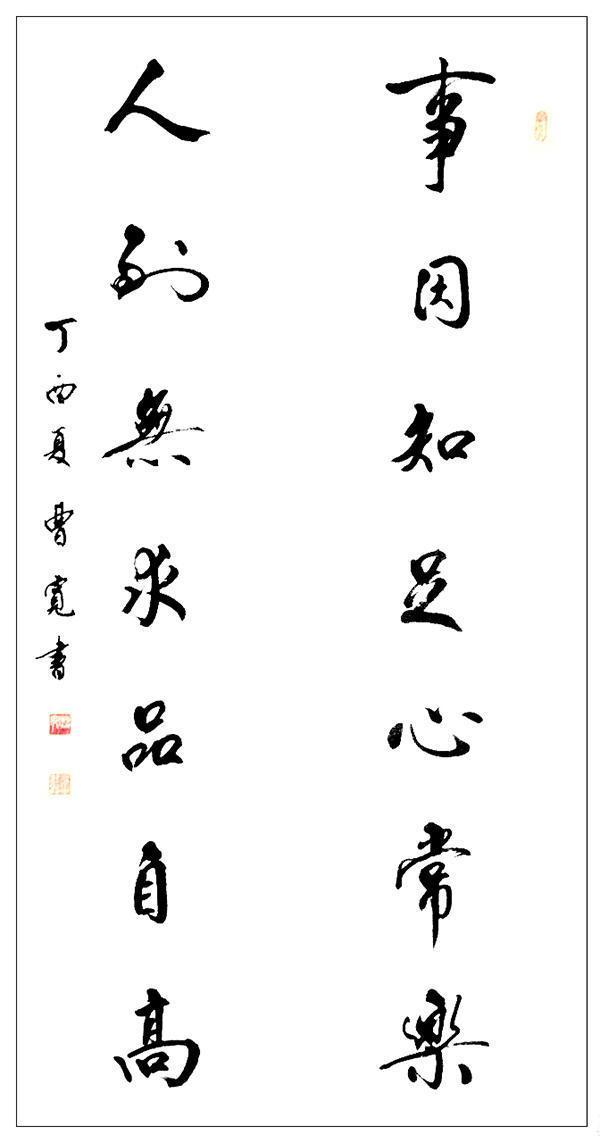 事因知足心常樂
人到無求品自高
丁酉夏曹寬書